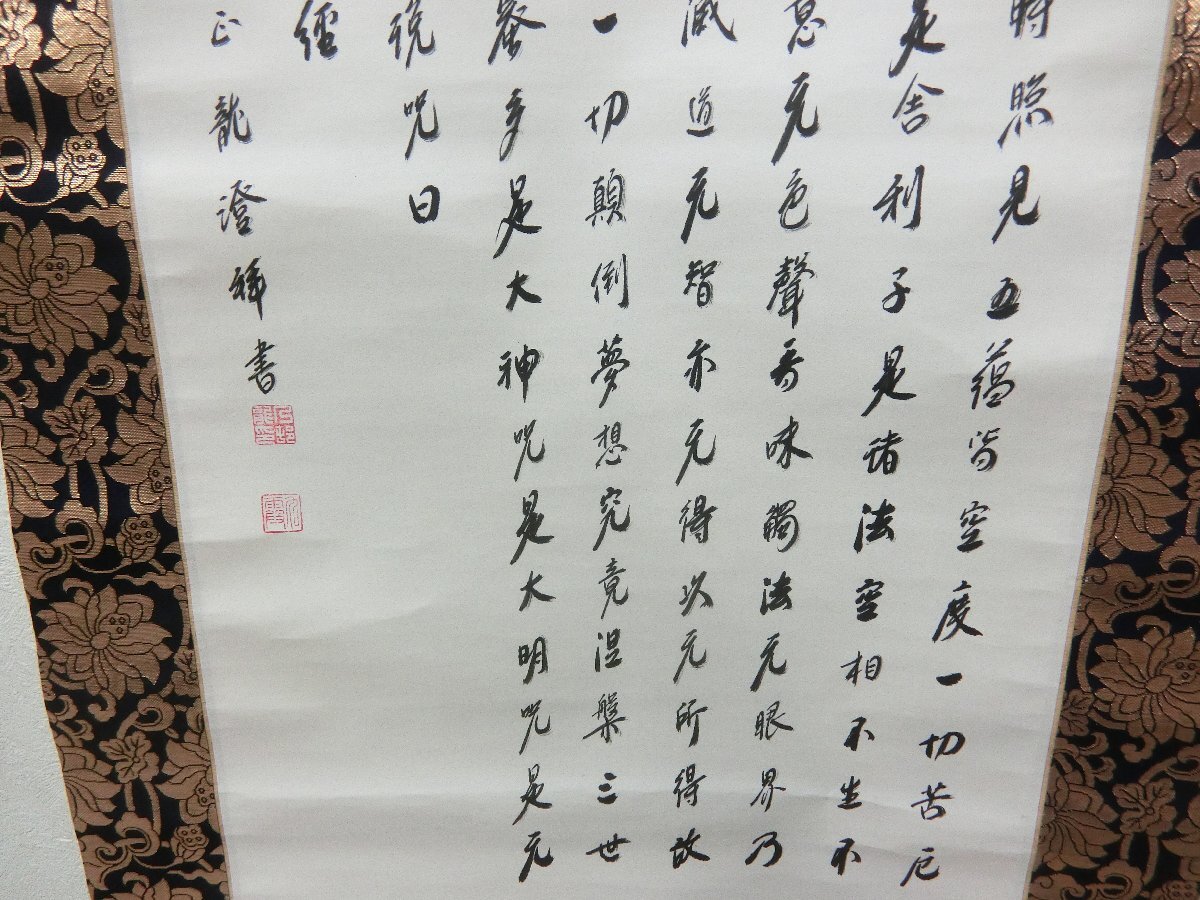 時照見五蘊皆空度一切苦厄
是舍利子是諸法空相不生不
意无色聲香味觸法无眼界乃
滅道无智亦无得以无所得故
一切顛倒夢想究竟涅槃三世
蜜多是大神咒是大明咒是无
説咒曰
經
正龍澄禅書